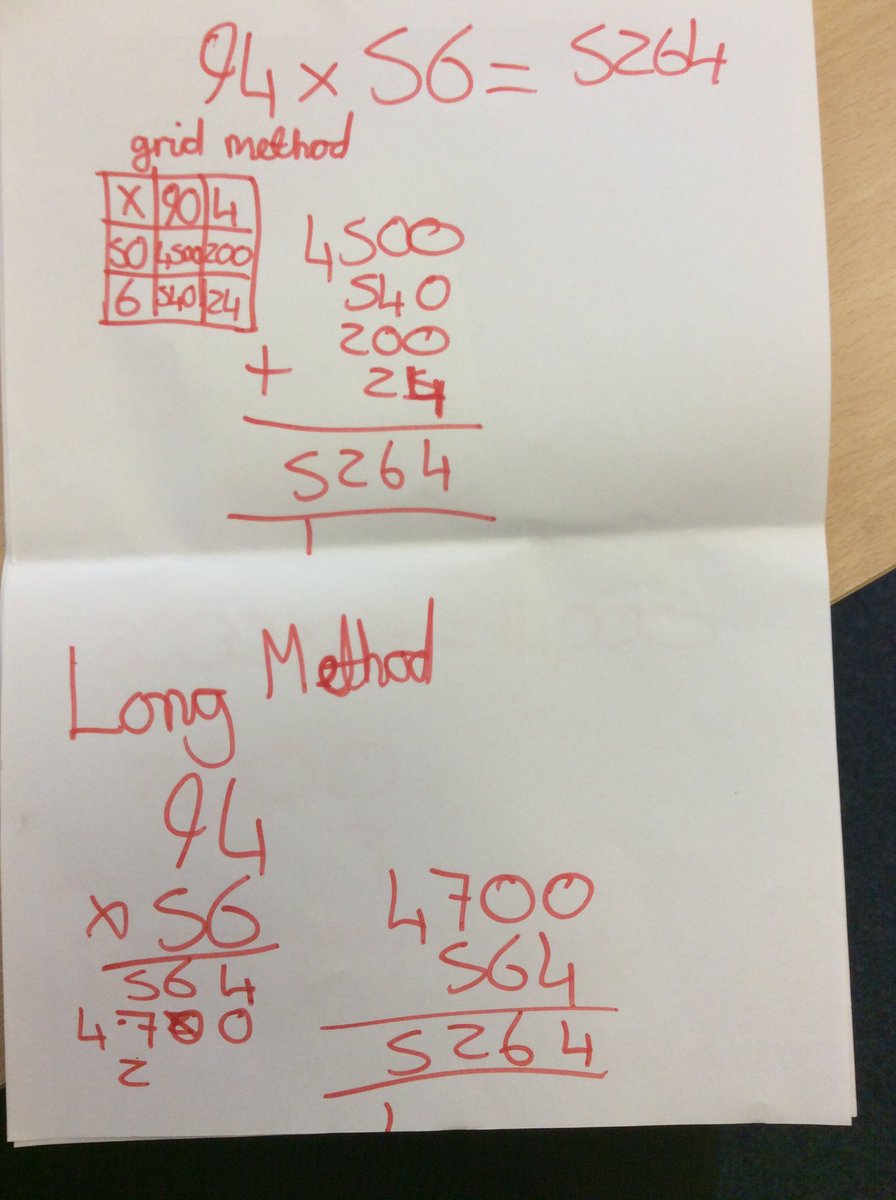 94 × 56 = 5264
grid method
× 90 4
50 4500 200
6 540 24
4500
540
200
+ 24
5264
1
Long Method
94
× 56
564
4700
2
4700
564
5264
1